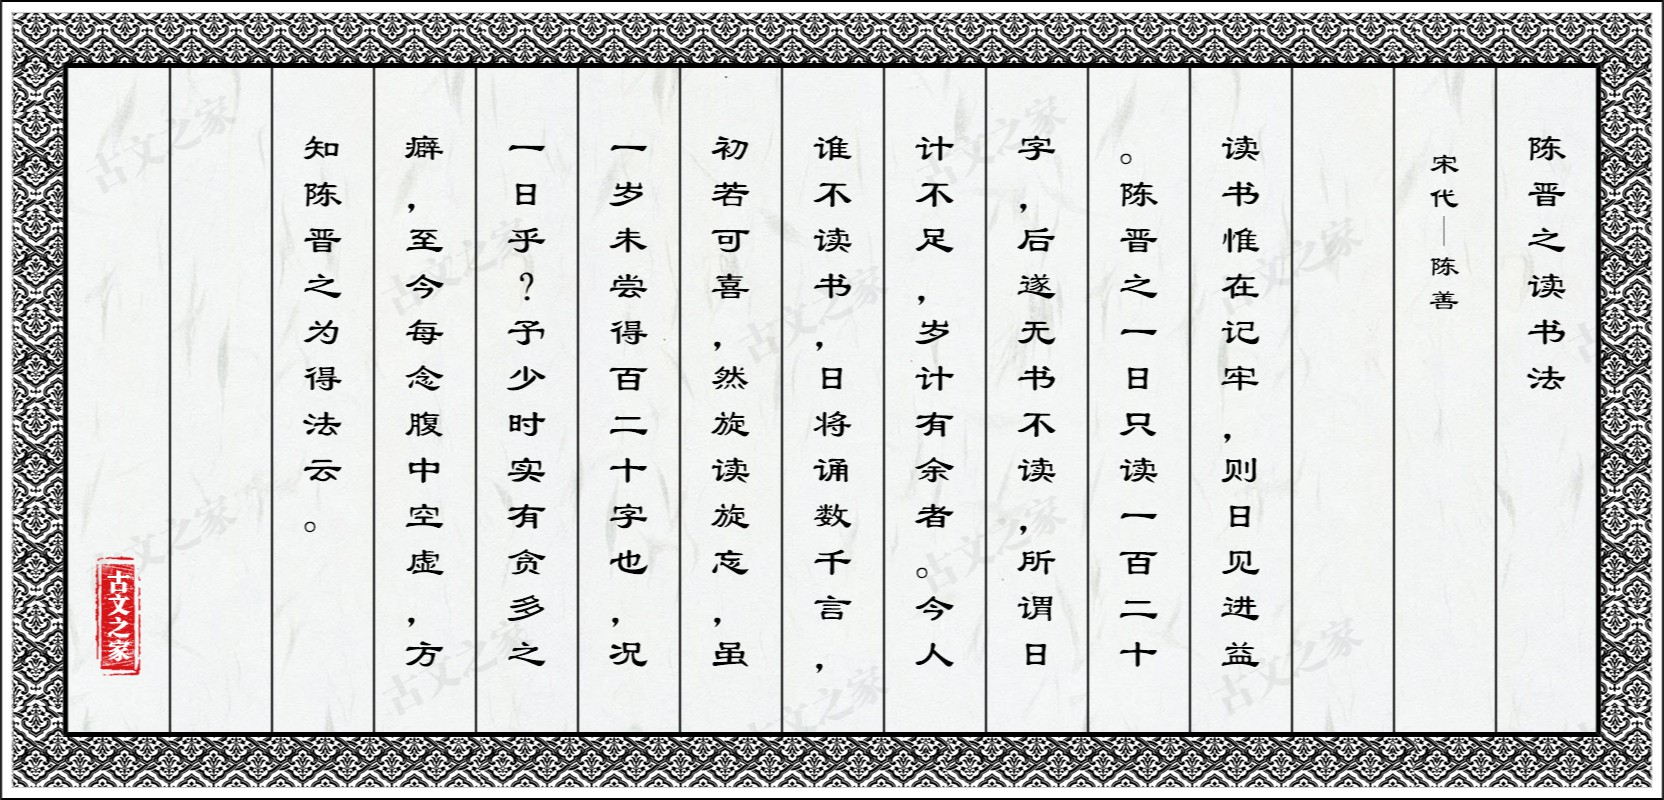 陈晋之读书法
宋代—陈善
读书惟在记牢，则日见进益
。陈晋之一日只读一百二十
字，后遂无书不读，所谓日
计不足，岁计有余者。今人
谁不读书，日将诵数千言，
初若可喜，然旋读旋忘，虽
一岁未尝得百二十字也，况
一日乎？予少时实有贪多之
癖，至今每念腹中空虚，方
知陈晋之为得法云。
古文之家